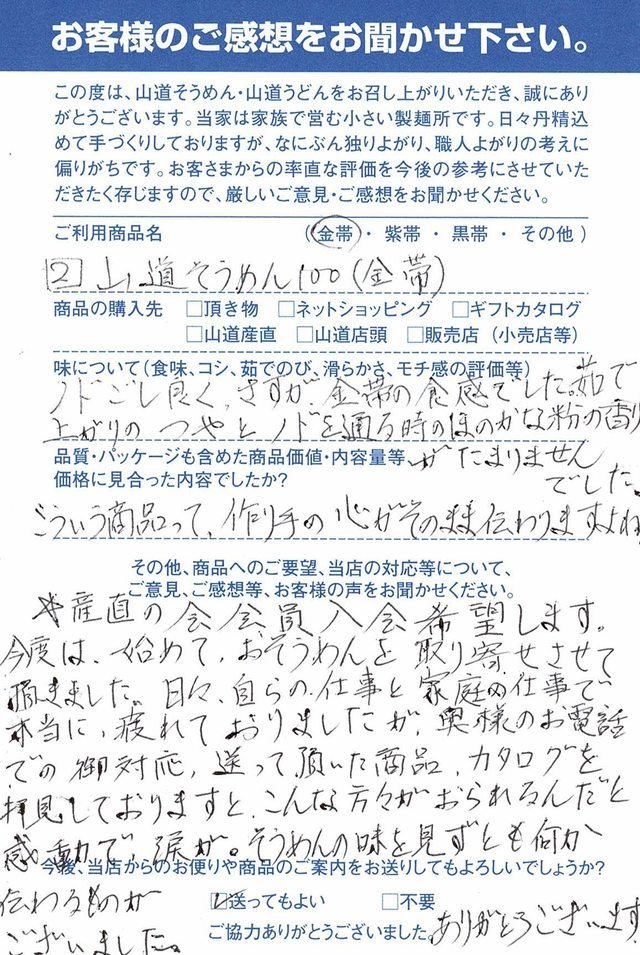 お客様のご感想をお聞かせ下さい。
この度は、山道そうめん・山道うどんをお召し上がりいただき、誠にあり
がとうございます。当家は家族で営む小さい製麺所です。日々丹精込
めて手づくりしておりますが、なにぶん独りよがり、職人よがりの考えに
偏りがちです。お客さまからの率直な評価を今後の参考にさせていた
だきたく存じますので、厳しいご意見・ご感想をお聞かせください。
ご利用商品名 (金帯・紫帯・黒帯・その他)
2 山道そうめん100(金帯)
商品の購入先 □頂き物 □ネットショッピング □ギフトカタログ
□山道産直 □山道店頭 □販売店(小売店等)
味について(食味、コシ、茹でのび、滑らかさ、モチ感の評価等)
ノドごし良く、さすが、金帯の食感でした。茹で
上がりのつやとノドを通る時のほのかな粉の香り
品質・パッケージも含めた商品価値・内容量等、がたまりません
価格に見合った内容でしたか? でした。
こういう商品って、作り手の心がそのまま伝わりますよね
その他、商品へのご要望、当店の対応等について、
ご意見、ご感想等、お客様の声をお聞かせください。
産直の会会員入会希望します。
今度は、始めて、おそうめんを取り寄せさせて
頂きました。日々、自らの仕事と家庭の仕事で
本当に、疲れておりましたが、奥様のお電話
での御対応、送って頂いた商品、カタログを
拝見しておりますと、こんな方々がおられるんだと
感動で、涙が。そうめんの味を見ずとも何か
今後、当店からのお便りや商品のご案内をお送りしてもよろしいでしょうか?
伝わるものが □送ってもよい □不要
ご協力ありがとうございました。ありがとうございます
ございました。